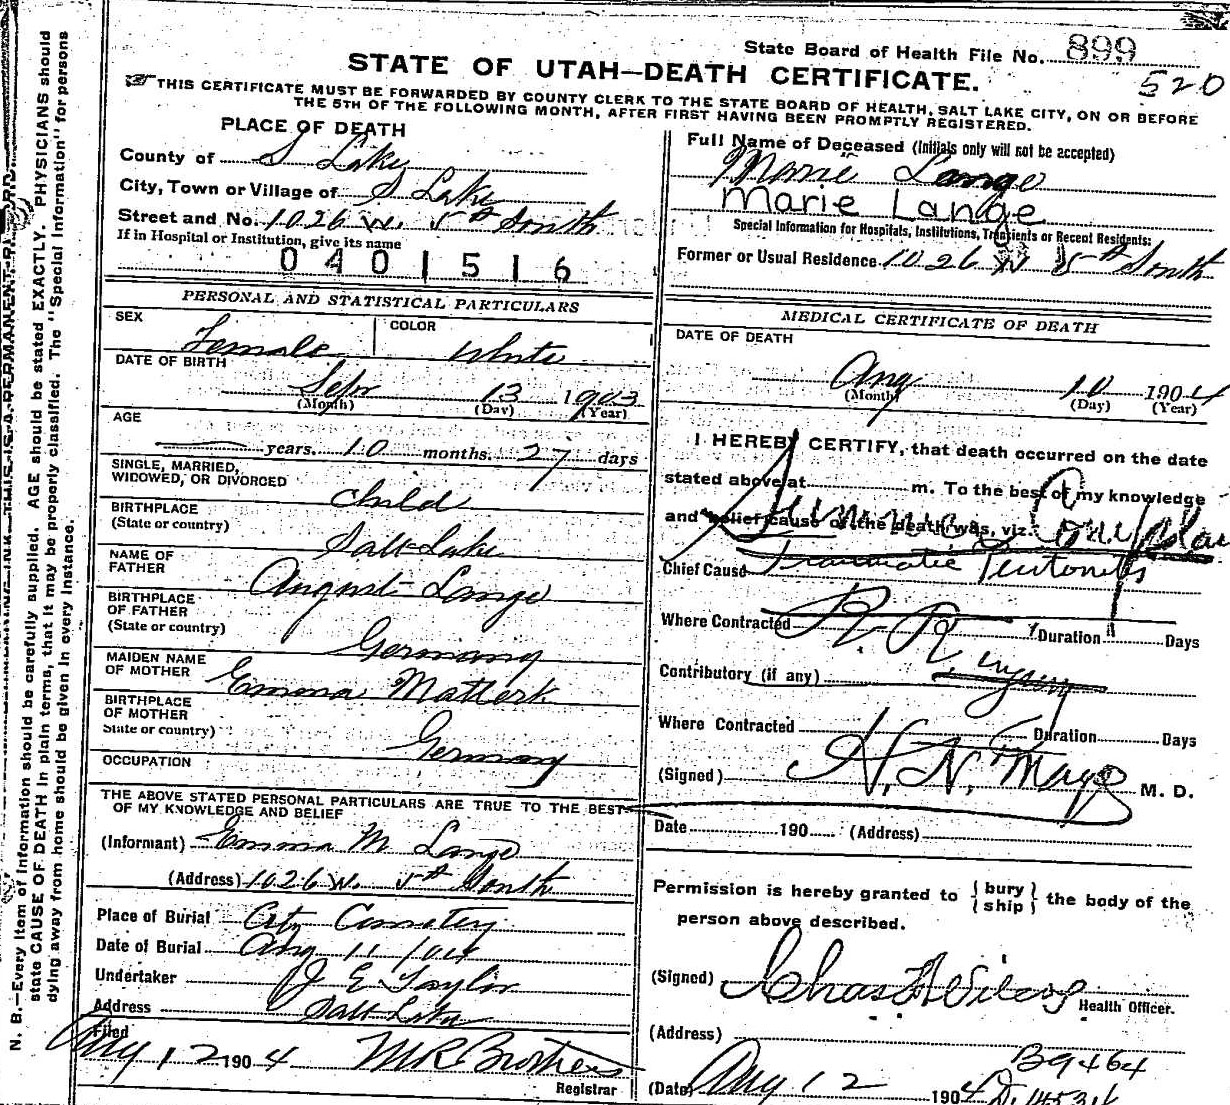 State Board of Health File No. 899
520
STATE OF UTAH—DEATH CERTIFICATE.
THIS CERTIFICATE MUST BE FORWARDED BY COUNTY CLERK TO THE STATE BOARD OF HEALTH, SALT LAKE CITY, ON OR BEFORE
THE 5TH OF THE FOLLOWING MONTH, AFTER FIRST HAVING BEEN PROMPTLY REGISTERED.
PLACE OF DEATH
County of S Lake
City, Town or Village of S Lake
Street and No. 1026 W. 5th South
If in Hospital or Institution, give its name
0401516
Full Name of Deceased (Initials only will not be accepted)
Marie Lange
Marie Lange
Special Information for Hospitals, Institutions, Transients or Recent Residents:
Former or Usual Residence 1026 W 5th South
PERSONAL AND STATISTICAL PARTICULARS
SEX Female
COLOR White
DATE OF BIRTH
Sept 13 1903
(Month) (Day) (Year)
AGE
years. 10 months. 27 days
SINGLE, MARRIED,
WIDOWED, OR DIVORCED
Child
BIRTHPLACE
(State or country)
Salt Lake
NAME OF
FATHER
August Lange
BIRTHPLACE
OF FATHER
(State or country)
Germany
MAIDEN NAME
OF MOTHER
Emma
BIRTHPLACE
OF MOTHER
State or country)
Germany
OCCUPATION
THE ABOVE STATED PERSONAL PARTICULARS ARE TRUE TO THE BEST
OF MY KNOWLEDGE AND BELIEF
(Informant) Emma M Lange
(Address) 1026 W. 5th South
Place of Burial City Cemetery
Date of Burial Aug 11 1904
Undertaker J E Taylor
Address Salt Lake
Filed
Aug 12 1904
Registrar
MEDICAL CERTIFICATE OF DEATH
DATE OF DEATH
Aug 10 1904
(Month) (Day) (Year)
I HEREBY CERTIFY, that death occurred on the date
stated above at m. To the best of my knowledge
and belief cause of the death was, viz.
Chief Cause Traumatic Peritonitis
Where Contracted Duration Days
R. R. injury
Contributory (if any)
Where Contracted Duration Days
(Signed) H. N. Mayo M. D.
Date 190 (Address)
Permission is hereby granted to { bury / ship } the body of the
person above described.
(Signed) Chas Wilcox
Health Officer.
(Address)
B9464
(Date) Aug 12 1904
N. B.—Every item of information should be carefully supplied. AGE should be stated EXACTLY. PHYSICIANS should
state CAUSE OF DEATH in plain terms, that it may be properly classified. The "Special Information" for persons
dying away from home should be given in every instance.